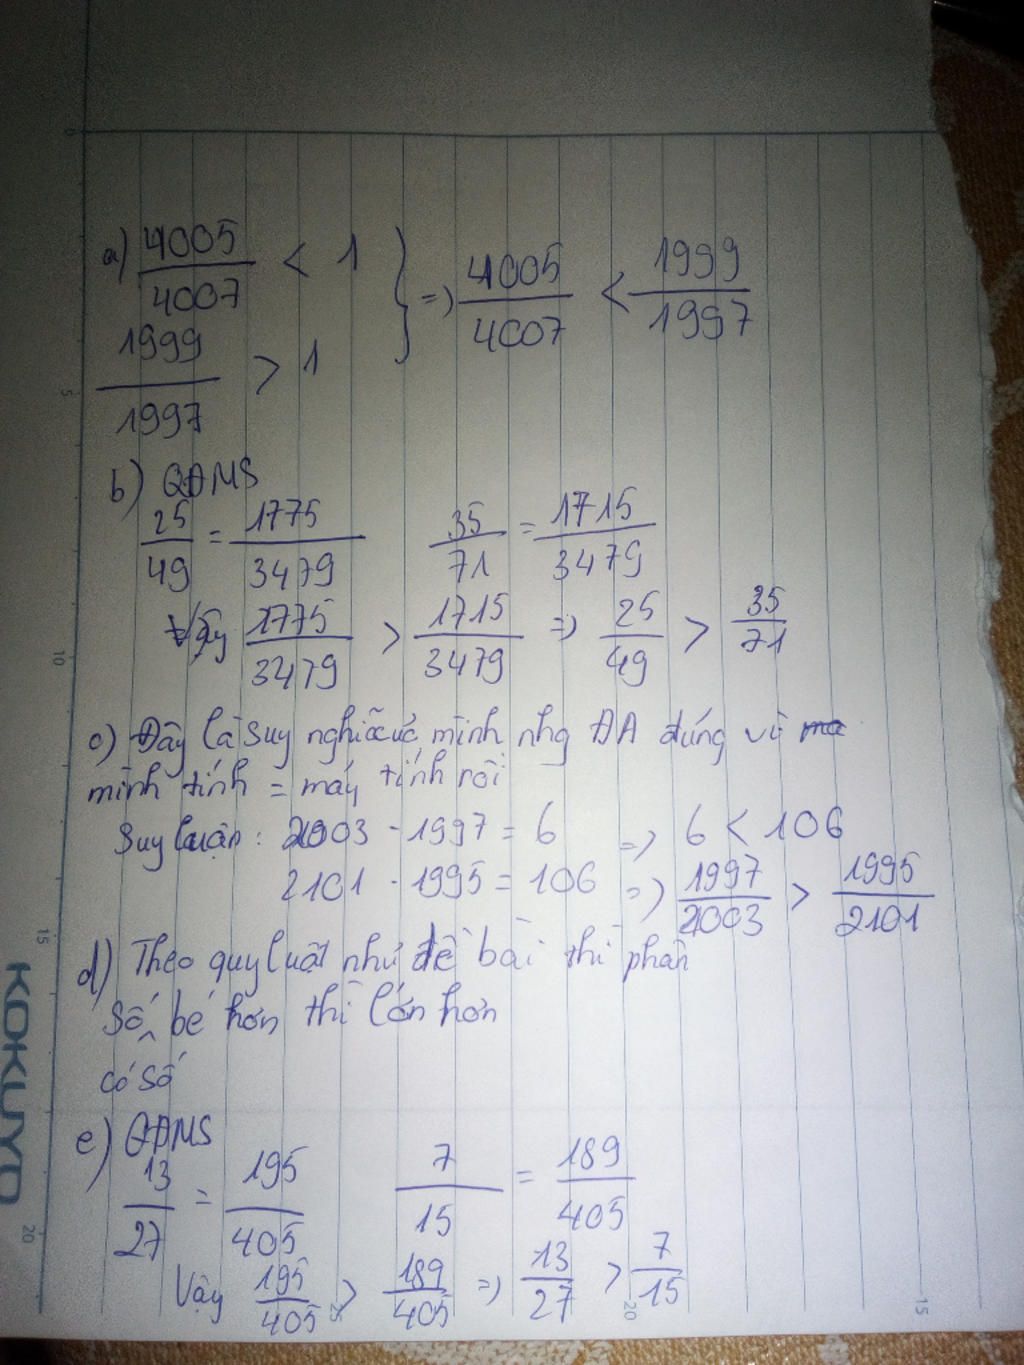 a) 4005/4007 < 1 } => 4005/4007 < 1999/1997
1999/1997 > 1
b) QĐMS
25/49 = 1775/3479 35/71 = 1715/3479
Vậy 1775/3479 > 1715/3479 => 25/49 > 35/71
c) Đây là suy nghĩ của mình nhg ĐA đúng vì
mình tính = máy tính rồi
Suy luận: 2003 - 1997 = 6 => 6 < 106
2101 - 1995 = 106 => 1997/2003 > 1995/2101
d) Theo quy luật như đề bài thì phân
số ^ bé hơn thì lớn hơn
có số
e) QĐMS
13/27 = 195/405 7/15 = 189/405
Vậy 195/405 > 189/405 => 13/27 > 7/15
KOKUYO
0
5
10
15
20
25
20
15